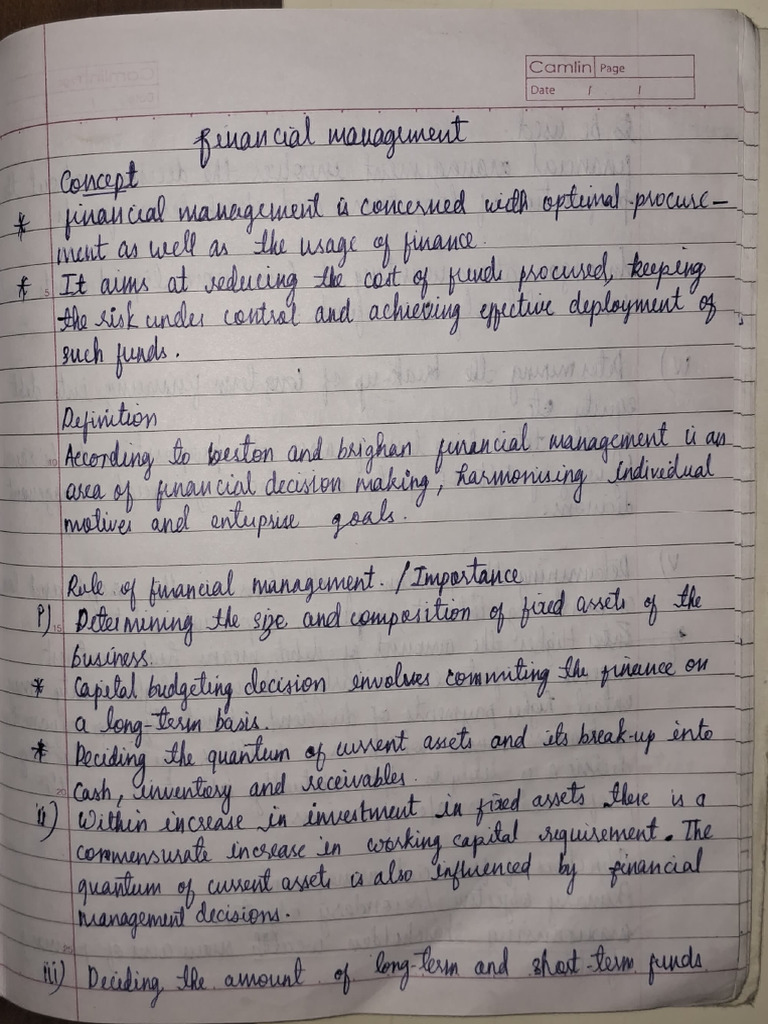 Camlin Page
Date / /
Financial management
Concept
* Financial management is concerned with optimal procure-
ment as well as the usage of finance.
* It aims at reducing the cost of funds procured, keeping
the risk under control and achieving effective deployment of
such funds.
Definition
According to weston and brighan financial management is an
area of financial decision making, harmonising individual
motives and enterprise goals.
Role of financial management. / Importance
i) Determining the size and composition of fixed assets of the
business.
* Capital budgeting decision involves commiting the finance on
a long-term basis.
* Deciding the quantum of current assets and its break-up into
cash, inventory and receivables.
ii) Within increase in investment in fixed assets there is a
commensurate increase in working capital requirement. The
quantum of current assets is also influenced by financial
management decisions.
iii) Deciding the amount of long-term and short-term funds